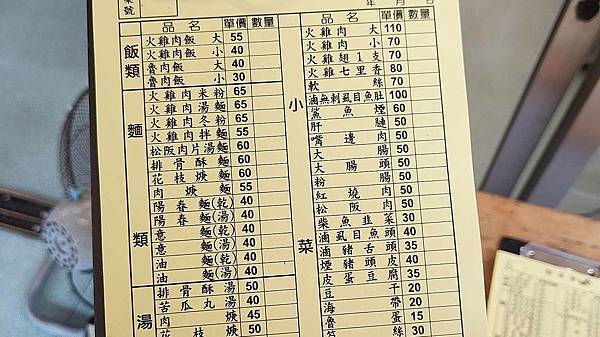 號
年 月
品名 單價 數量
飯類
火雞肉飯 大 55
火雞肉飯 小 40
魯肉飯 大 40
魯肉飯 小 30
麵類
火雞肉米粉 65
火雞肉湯麵 65
火雞肉冬粉 65
火雞肉拌麵 55
松阪肉片湯麵 60
排骨酥麵 60
花枝焿麵 60
肉焿麵 55
陽春麵(乾) 40
陽春麵(湯) 40
意麵(乾) 40
意麵(湯) 40
油麵(乾) 40
油麵(湯) 40
湯
排骨酥湯 50
苦瓜丸湯 40
肉焿 45
花枝焿 50
品名 單價 數量
小菜
火雞肉 大 110
火雞肉 小 70
火雞翅1支 70
火雞七里香 80
軟絲 70
滷無刺虱目魚肚 100
鯊魚煙 60
肝腱 50
嘴邊肉 50
大腸 50
大腸頭 50
粉腸 50
紅燒肉 50
松阪肉 50
柴魚韭菜 30
滷虱目魚頭 40
滷豬舌頭 35
煙豬頭皮 40
皮蛋豆腐 35
豆干 20
海帶 20
魯蛋 15
絲 30